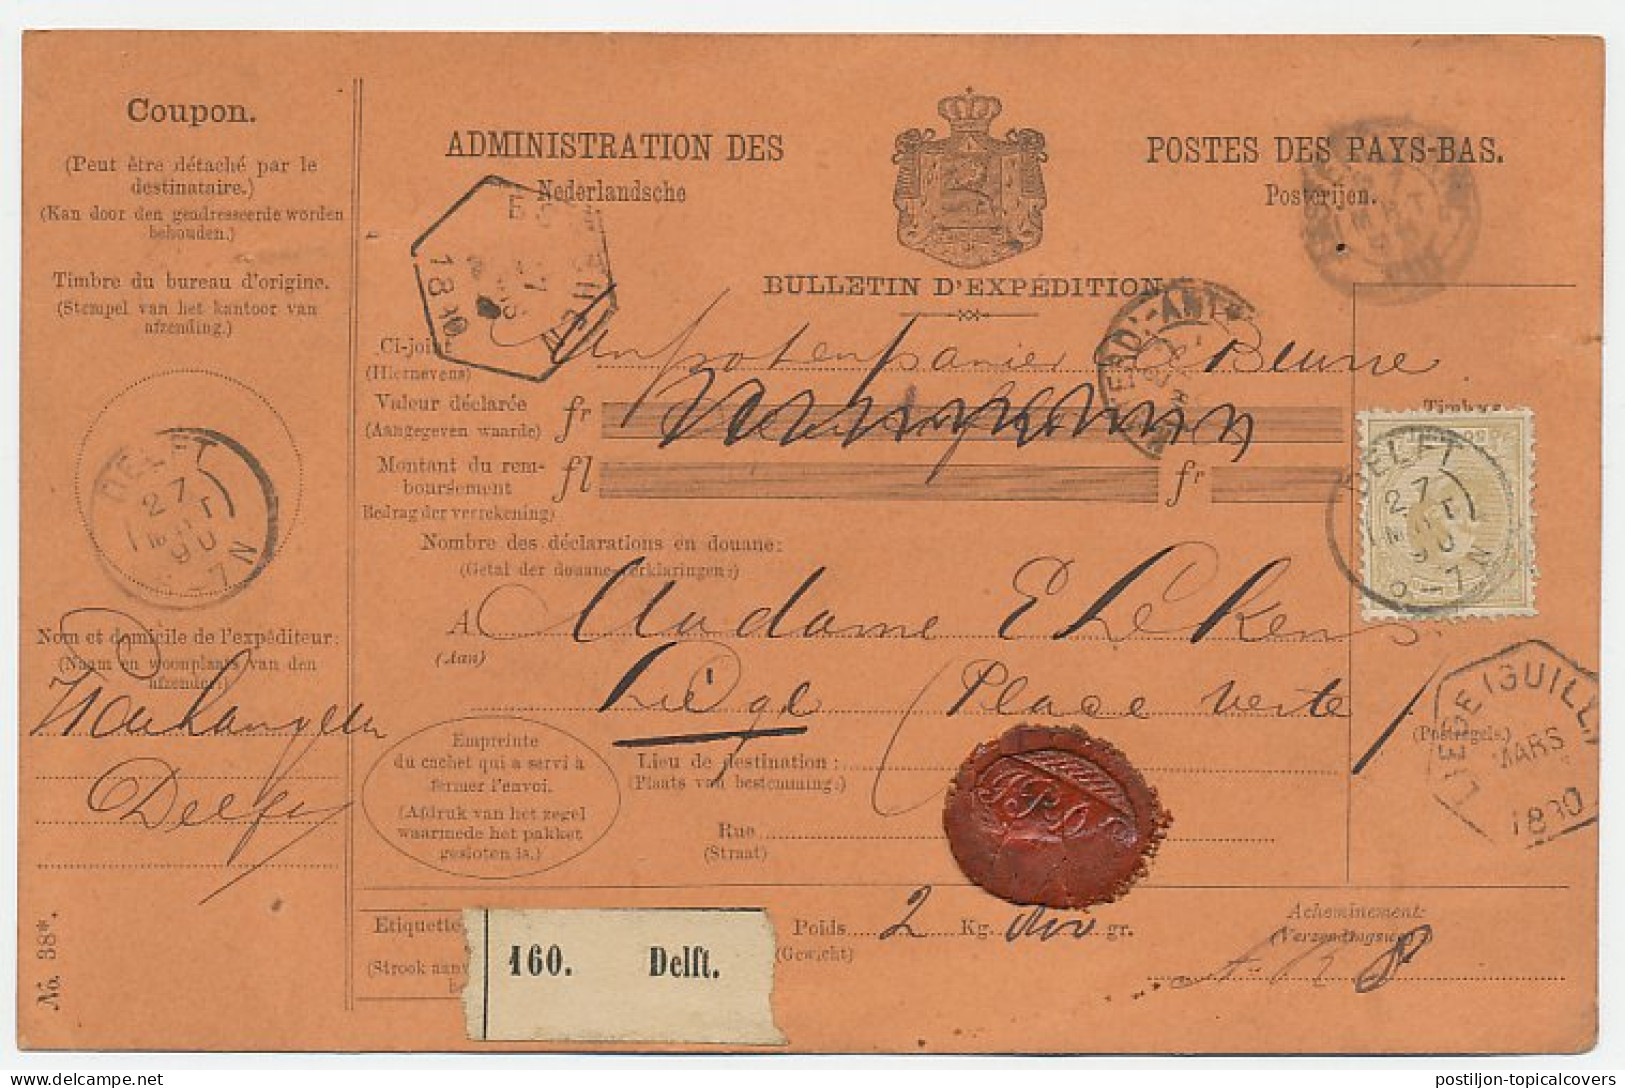 Coupon.
(Peut être détaché par le
destinataire.)
(Kan door den geadresseerde worden
behouden.)
Timbre du bureau d'origine.
(Stempel van het kantoor van
afzending.)
DELFT
27
MRT
90
6-7N
Nom et domicile de l'expéditeur:
(Naam en woonplaats van den
afzender:)
Delft
No. 38*.
ADMINISTRATION DES
POSTES DES PAYS-BAS.
Nederlandsche
Posterijen.
BULLETIN D'EXPÉDITION
Ci-joint
(Hiernevens)
Un pot en panier Beurre
Valeur déclarée
(Aangegeven waarde)
fr
Montant du rem-
boursement
(Bedrag der verrekening)
fl
fr
Timbre
Nombre des déclarations en douane:
(Getal der douane-verklaringen:)
DELFT
27
MRT
90
6-7N
A
(Aan)
Madame E Lekens
Liége (Place verte)
Empreinte
du cachet qui a servi à
fermer l'envoi.
(Afdruk van het zegel
waarmede het pakket
gesloten is.)
Lieu de destination:
(Plaats van bestemming:)
(Postregels.)
LIEGE (GUILL.)
MARS
1890
Rue
(Straat)
Etiquette
(Strook aan
160. Delft.
Poids 2 Kg. gr.
(Gewicht)
Acheminement:
(Verzendingsweg:)
1890
postiljon-topicalcovers
www.delcampe.net/nl/verzamelingen/store/postiljon-topicalcovers